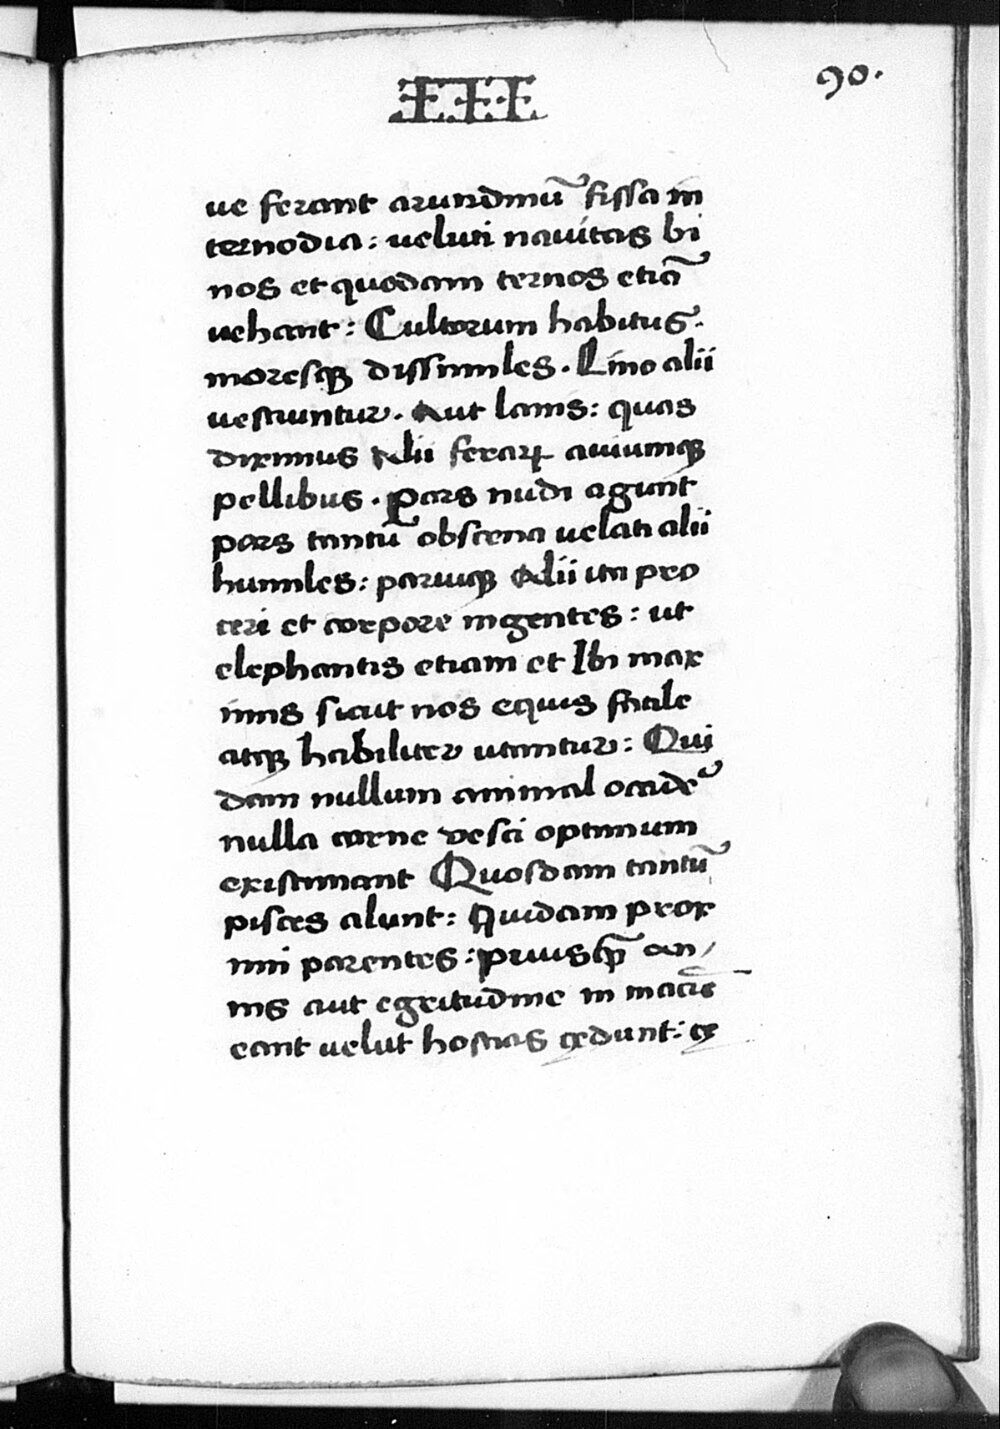 III
90.
ue ferant arundinũ fissa in
ternodia: veluti navitas bi
nos et quodam ternos etiã
uehant: Cultorum habitus.
moresqꝫ dissimiles. Lino alii
uestiuntur. Aut lanis: quas
diximus Alii feraꝝ auiumqꝫ
pellibus. Pars nudi agunt
pars tantũ obscena uelati alii
humiles: paruiqꝫ Alii ita pro
ceri et corpore ingentes: ut
elephantis etiam et Ibi max
imis sicut nos equis facile
atqꝫ habiliter utantur: Qui
dam nullum animal occidẽ
nulla carne vesci optimum
existimant Quosdam tantũ
pisces alunt: Quidam prox
imi parentes: priusqꝫ̃ an/
nis aut egritudine in maciẽ
eant uelut hostias cędunt: cę